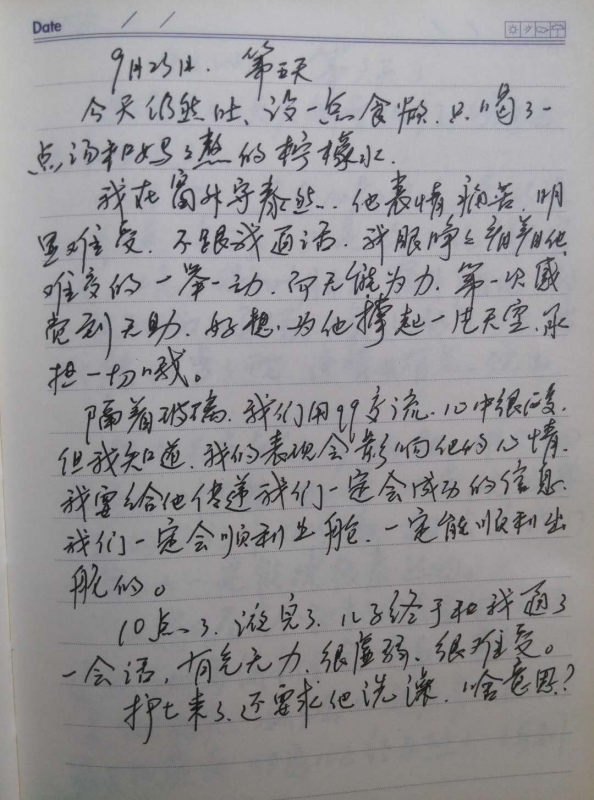 Date / /
9月25日. 第五天
今天仍然吐、没一点食欲.只喝了一
点汤和妈妈熬的柠檬水.
我在窗外守泰然.他表情痛苦.明
显难受.不跟我通话.我眼睁之看着他
难受的一举一动.而无能为力.第一次感
觉到无助.好想.为他撑起一片天空.承
担一切哦。
隔着玻璃.我们用QQ交流.心中很酸.
但我知道.我的表现会影响他的心情.
我要给他传递我们一定会成功的信息.
我们一定会顺利出舱.一定能顺利出
舱的。
10点了.液完了.儿子终于和我通了
一会话,有气无力.很虚弱.很难受。
护士来了.还要求他洗澡.啥意思?